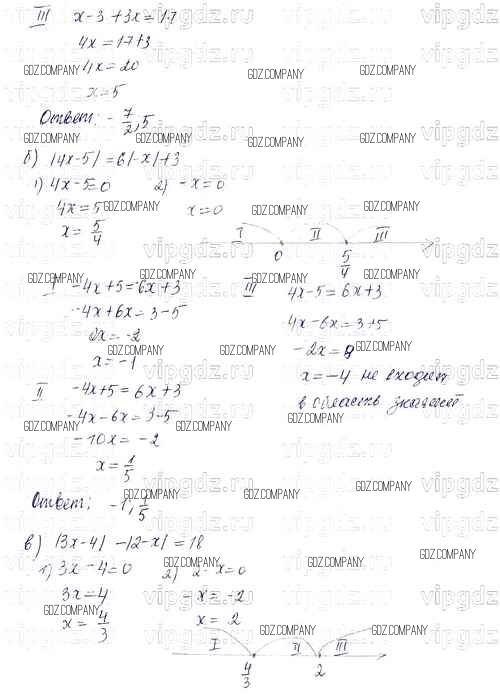 III x-3+3x=17
4x=17+3
4x=20
x=5
Ответ: -7/2, 5
б) |4x-5|=6|-x|+3
1) 4x-5=0
4x=5
x=5/4
2) -x=0
x=0
I II III
0 5/4
I -4x+5=-6x+3
-4x+6x=3-5
2x=-2
x=-1
II -4x+5=6x+3
-4x-6x=3-5
-10x=-2
x=1/5
III 4x-5=6x+3
4x-6x=3+5
-2x=8
x=-4 не входит
в область значений
Ответ: -1; 1/5
в) |3x-4|-|2-x|=18
1) 3x-4=0
3x=4
x=4/3
2) 2-x=0
-x=-2
x=2
I II III
4/3 2
GDZ.COMPANY
vipgdz.ru